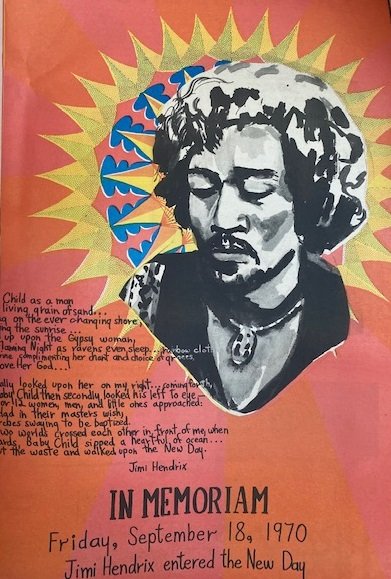 Child as a man
living grain of sand...
on the ever changing shore,
the sunrise...
up upon the Gypsy woman,
Night as ravens even sleep... rainbow
complimenting her chant and choice of
Her God...!
looked upon her on my right... coming forth,
Child then secondly looked his left to eye —
or 12 women, men, and little ones approached:
in their masters wish,
robes swaying to be baptized.
worlds crossed each other in front of me, when
Baby Child sipped a heartful of ocean...
the waste and walked upon the New Day.
Jimi Hendrix
IN MEMORIAM
Friday, September 18, 1970
Jimi Hendrix entered the New Day